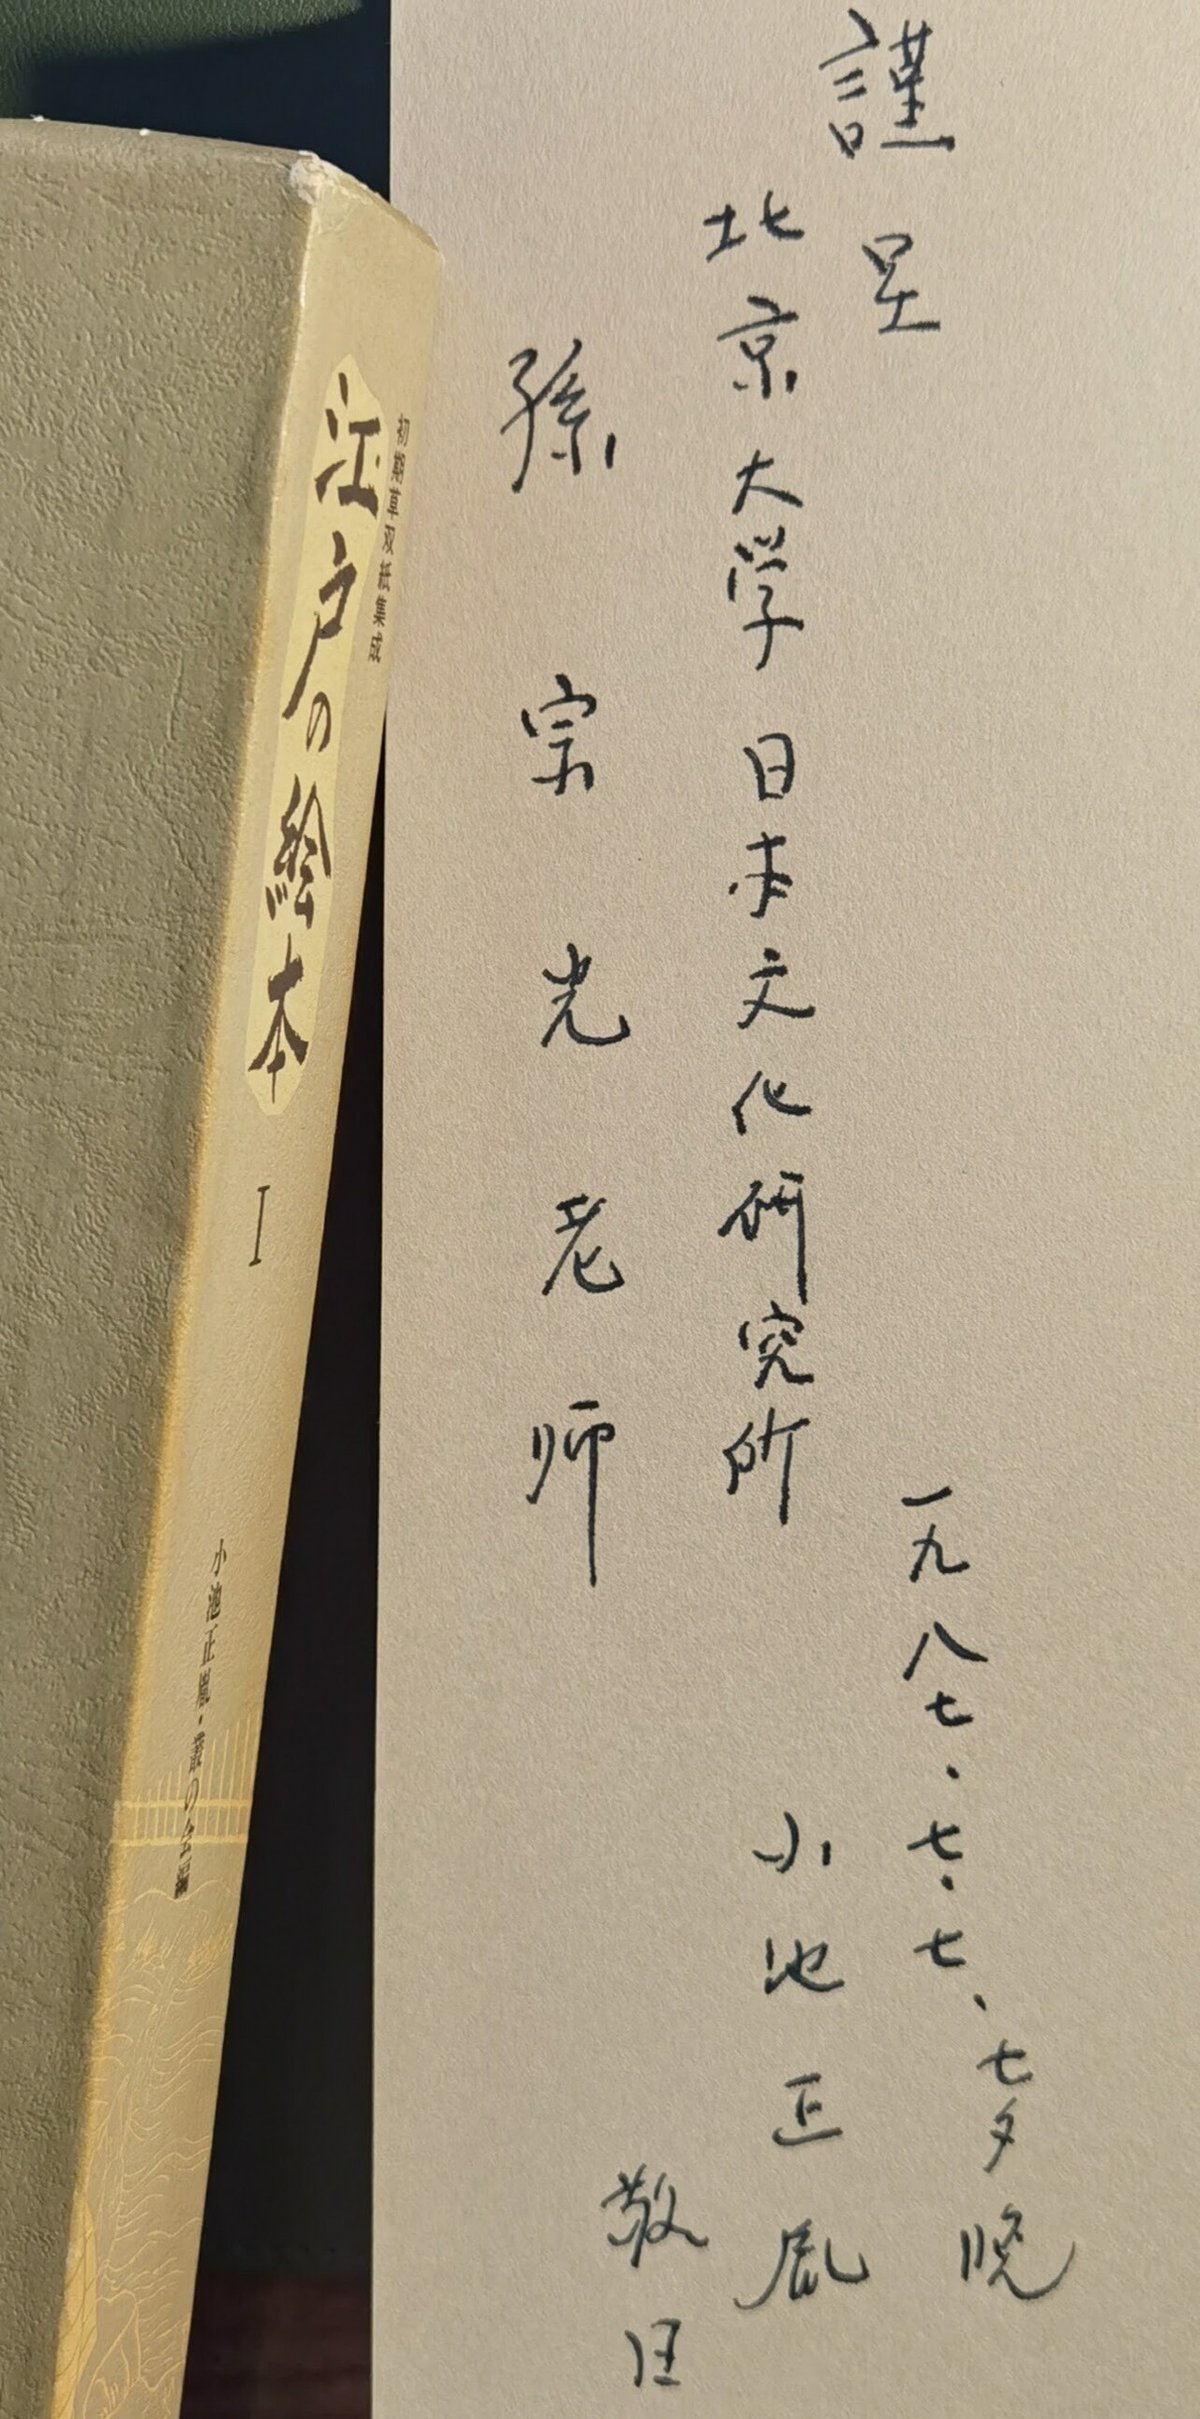 謹呈
北京大学日本文化研究所
孫宗光老师
一九八七・七・七、七夕晚
小池正胤
敬
初期草双紙集成
江戸の絵本 I
小池正胤・叢の会編